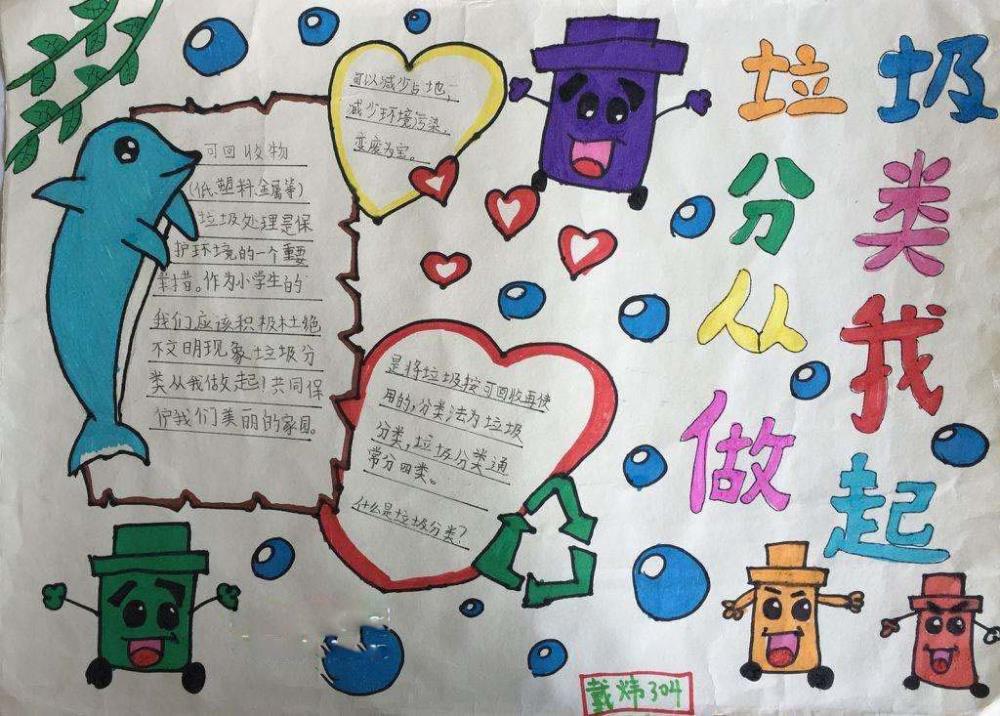 垃圾
分类
从我
做起
可回收物
(低.塑料.金属等)
垃圾处理是保
护环境的一个重要
举措。作为小学生的
我们应该积极杜绝
不文明现象垃圾分
类从我做起!共同保
护我们美丽的家园。
可以减少占地,
减少环境污染,
变废为宝。
是将垃圾按可回收再使
用的,分类法为垃圾
分类,垃圾分类通
常分四类。
什么是垃圾分类?
戴炜304